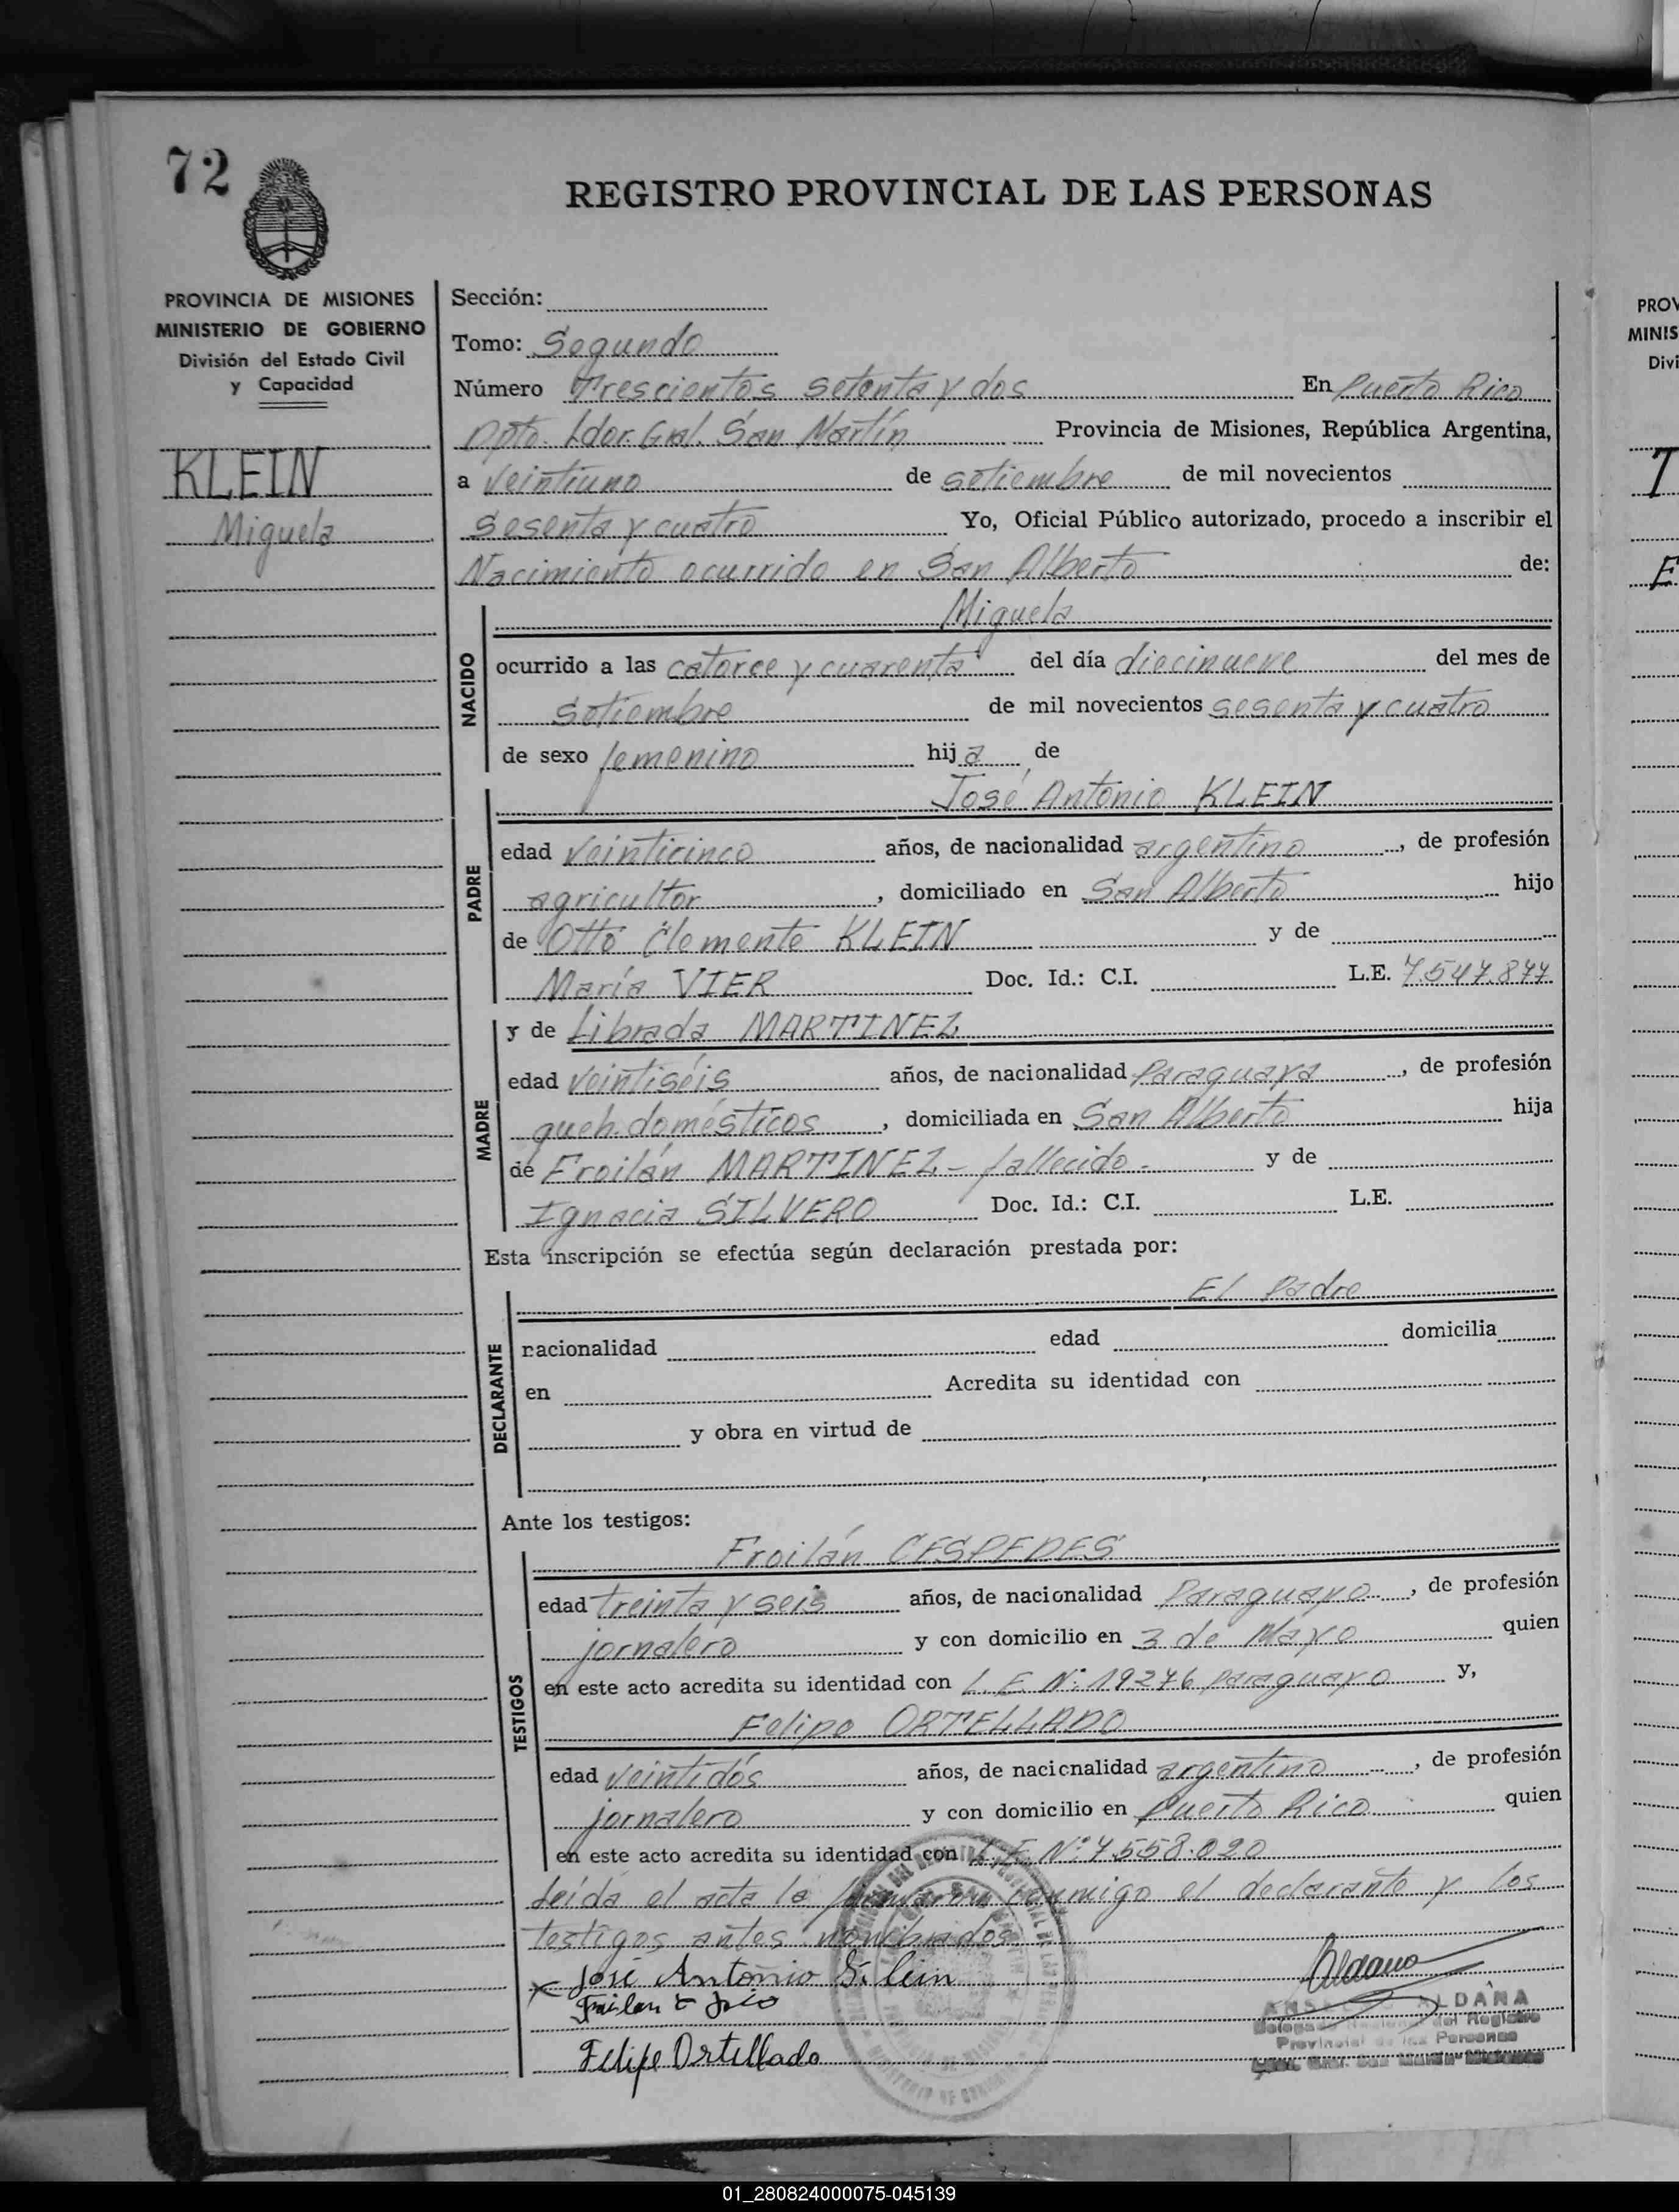 72
REGISTRO PROVINCIAL DE LAS PERSONAS
PROVINCIA DE MISIONES
MINISTERIO DE GOBIERNO
División del Estado Civil
y Capacidad
KLEIN
Miguela
Sección:
Tomo: Segundo
Número Trescientos setenta y dos En Puerto Rico
Dpto. Ldor. Gral. San Martín Provincia de Misiones, República Argentina,
a veintiuno de setiembre de mil novecientos
sesenta y cuatro Yo, Oficial Público autorizado, procedo a inscribir el
Nacimiento ocurrido en San Alberto de:
NACIDO
Miguela
ocurrido a las catorce y cuarenta del día diecinueve del mes de
setiembre de mil novecientos sesenta y cuatro
de sexo femenino hija de
PADRE
José Antonio KLEIN
edad veinticinco años, de nacionalidad argentino, de profesión
agricultor, domiciliado en San Alberto hijo
de Otto Clemente KLEIN y de
María VIER Doc. Id.: C.I. L.E. 7.547.877
MADRE
y de Librada MARTINEZ
edad veintiséis años, de nacionalidad Paraguaya, de profesión
queh. domésticos, domiciliada en San Alberto hija
de Froilán MARTINEZ - fallecido - y de
Ignacia SILVERO Doc. Id.: C.I. L.E.
Esta inscripción se efectúa según declaración prestada por:
DECLARANTE
El Padre
nacionalidad edad domicilia
en Acredita su identidad con
y obra en virtud de
Ante los testigos:
TESTIGOS
Froilán CESPEDES
edad treinta y seis años, de nacionalidad Paraguayo, de profesión
jornalero y con domicilio en 3 de Mayo quien
en este acto acredita su identidad con L.E. Nº: 19276 paraguayo y,
Felipe ORTELLADO
edad veintidós años, de nacionalidad argentino, de profesión
jornalero y con domicilio en Puerto Rico quien
en este acto acredita su identidad con L.E. Nº: 7.558.020
Leída el acta la firmaron conmigo el declarante y los
testigos antes nombrados
x José Antonio Klein
Felipe Ortellado
ALDANA
Provincial de las Personas
PROV
MINIS
Divi
01_280824000075-045139